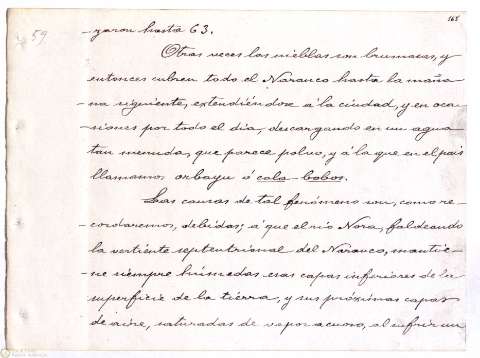 165
59
-garon hasta 63.
Otras veces las nieblas son brumosas, y
entonces cubren todo el Naranco hasta la maña-
na siguiente, extendiéndose á la ciudad, y en oca-
-siones por todo el dia, descargando en un agua
tan menuda, que parece polvo, y á la que en el pais
llamamos orbayu ó cala-bobos.
Las causas de tal fenómeno son, como re-
cordaremos, debidas; á que el rio Nora, faldeando
la vertiente septentrional del Naranco, mantie-
-ne siempre húmedas esas capas inferiores de la
superficie de la tierra, y sus próximas capas
de aire, saturadas de vapor acuoso, al sufrir un